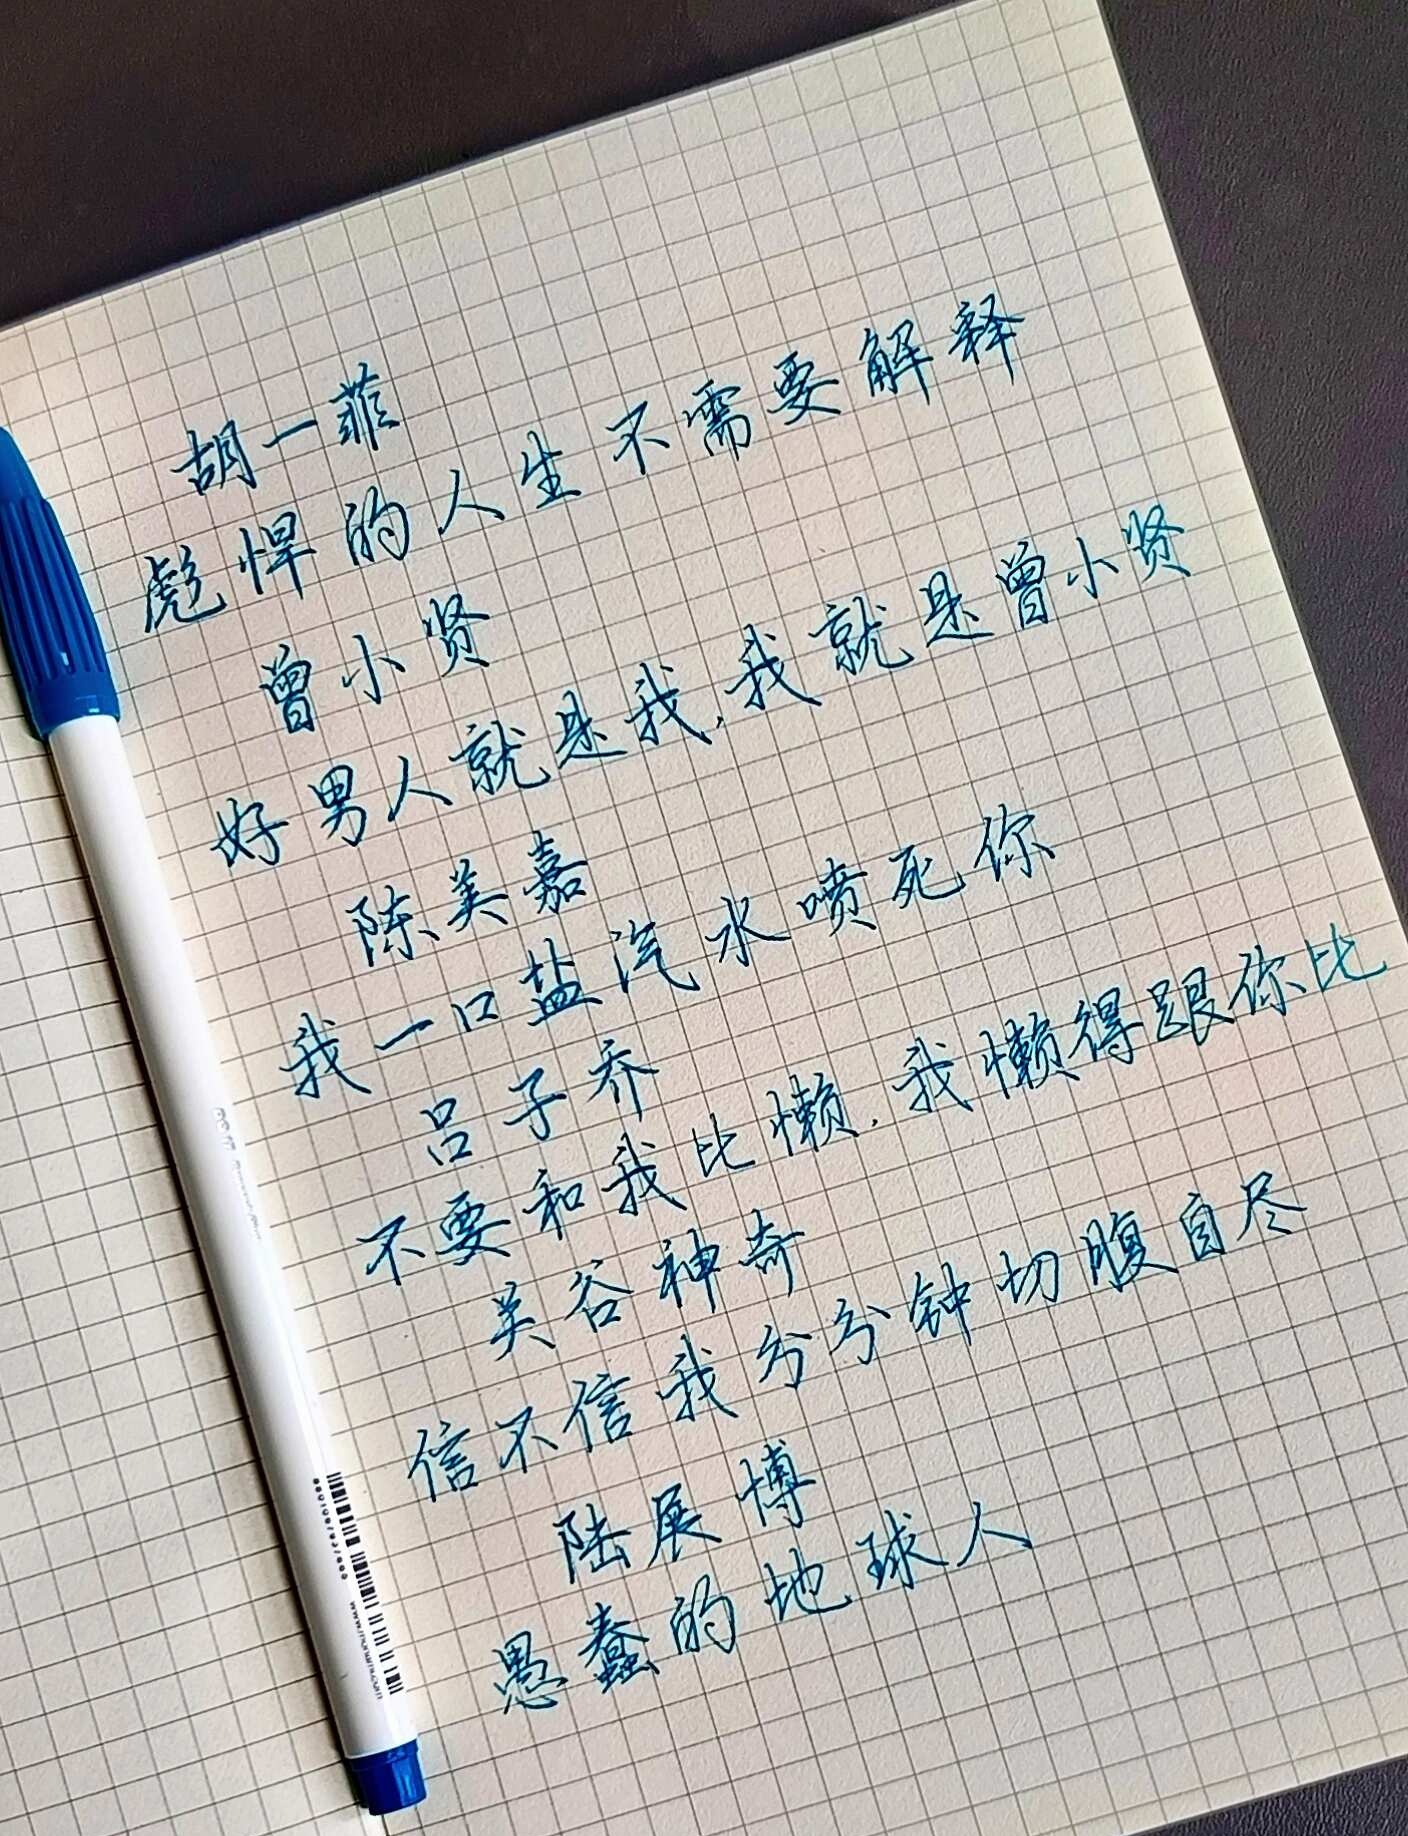 胡一菲
彪悍的人生不需要解释
曾小贤
好男人就是我,我就是曾小贤
陈美嘉
我一口盐汽水喷死你
吕子乔
不要和我比懒,我懒得跟你比
关谷神奇
信不信我分分钟切腹自尽
陆展博
愚蠢的地球人